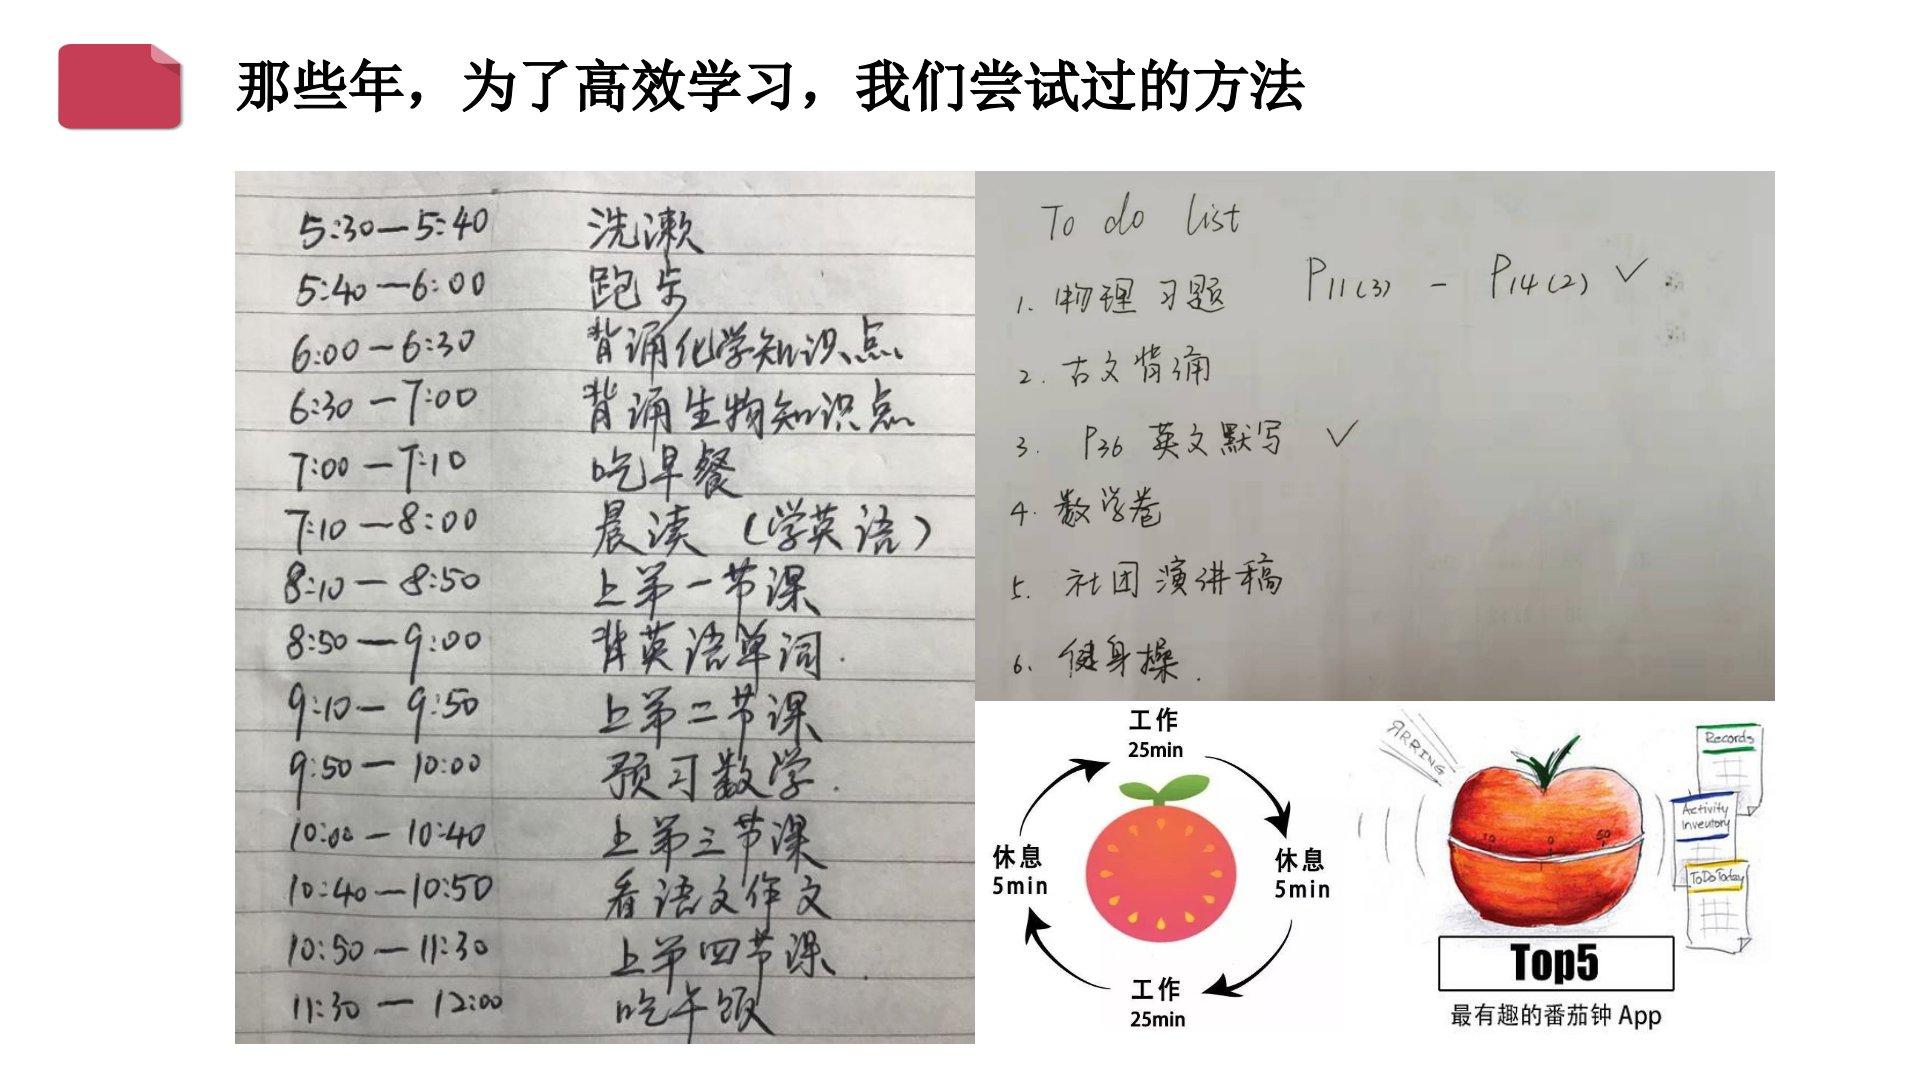 那些年，为了高效学习，我们尝试过的方法
5:30—5:40 洗漱
5:40—6:00 跑步
6:00—6:30 背诵化学知识点
6:30—7:00 背诵生物知识点
7:00—7:10 吃早餐
7:10—8:00 晨读（学英语）
8:10—8:50 上第一节课
8:50—9:00 背英语单词.
9:10—9:50 上第二节课
9:50—10:00 预习数学.
10:00—10:40 上第三节课
10:40—10:50 看语文作文
10:50—11:30 上第四节课.
11:30—12:00 吃午饭
To do list
1. 物理习题 P11(3) - P14(2) ✓
2. 古文背诵
3. P36 英文默写 ✓
4. 数学卷
5. 社团演讲稿
6. 健身操.
工作
25min
休息
5min
工作
25min
休息
5min
RRRING
Records
Activity
Inventory
ToDoToday
10 0 50
Top5
最有趣的番茄钟 App